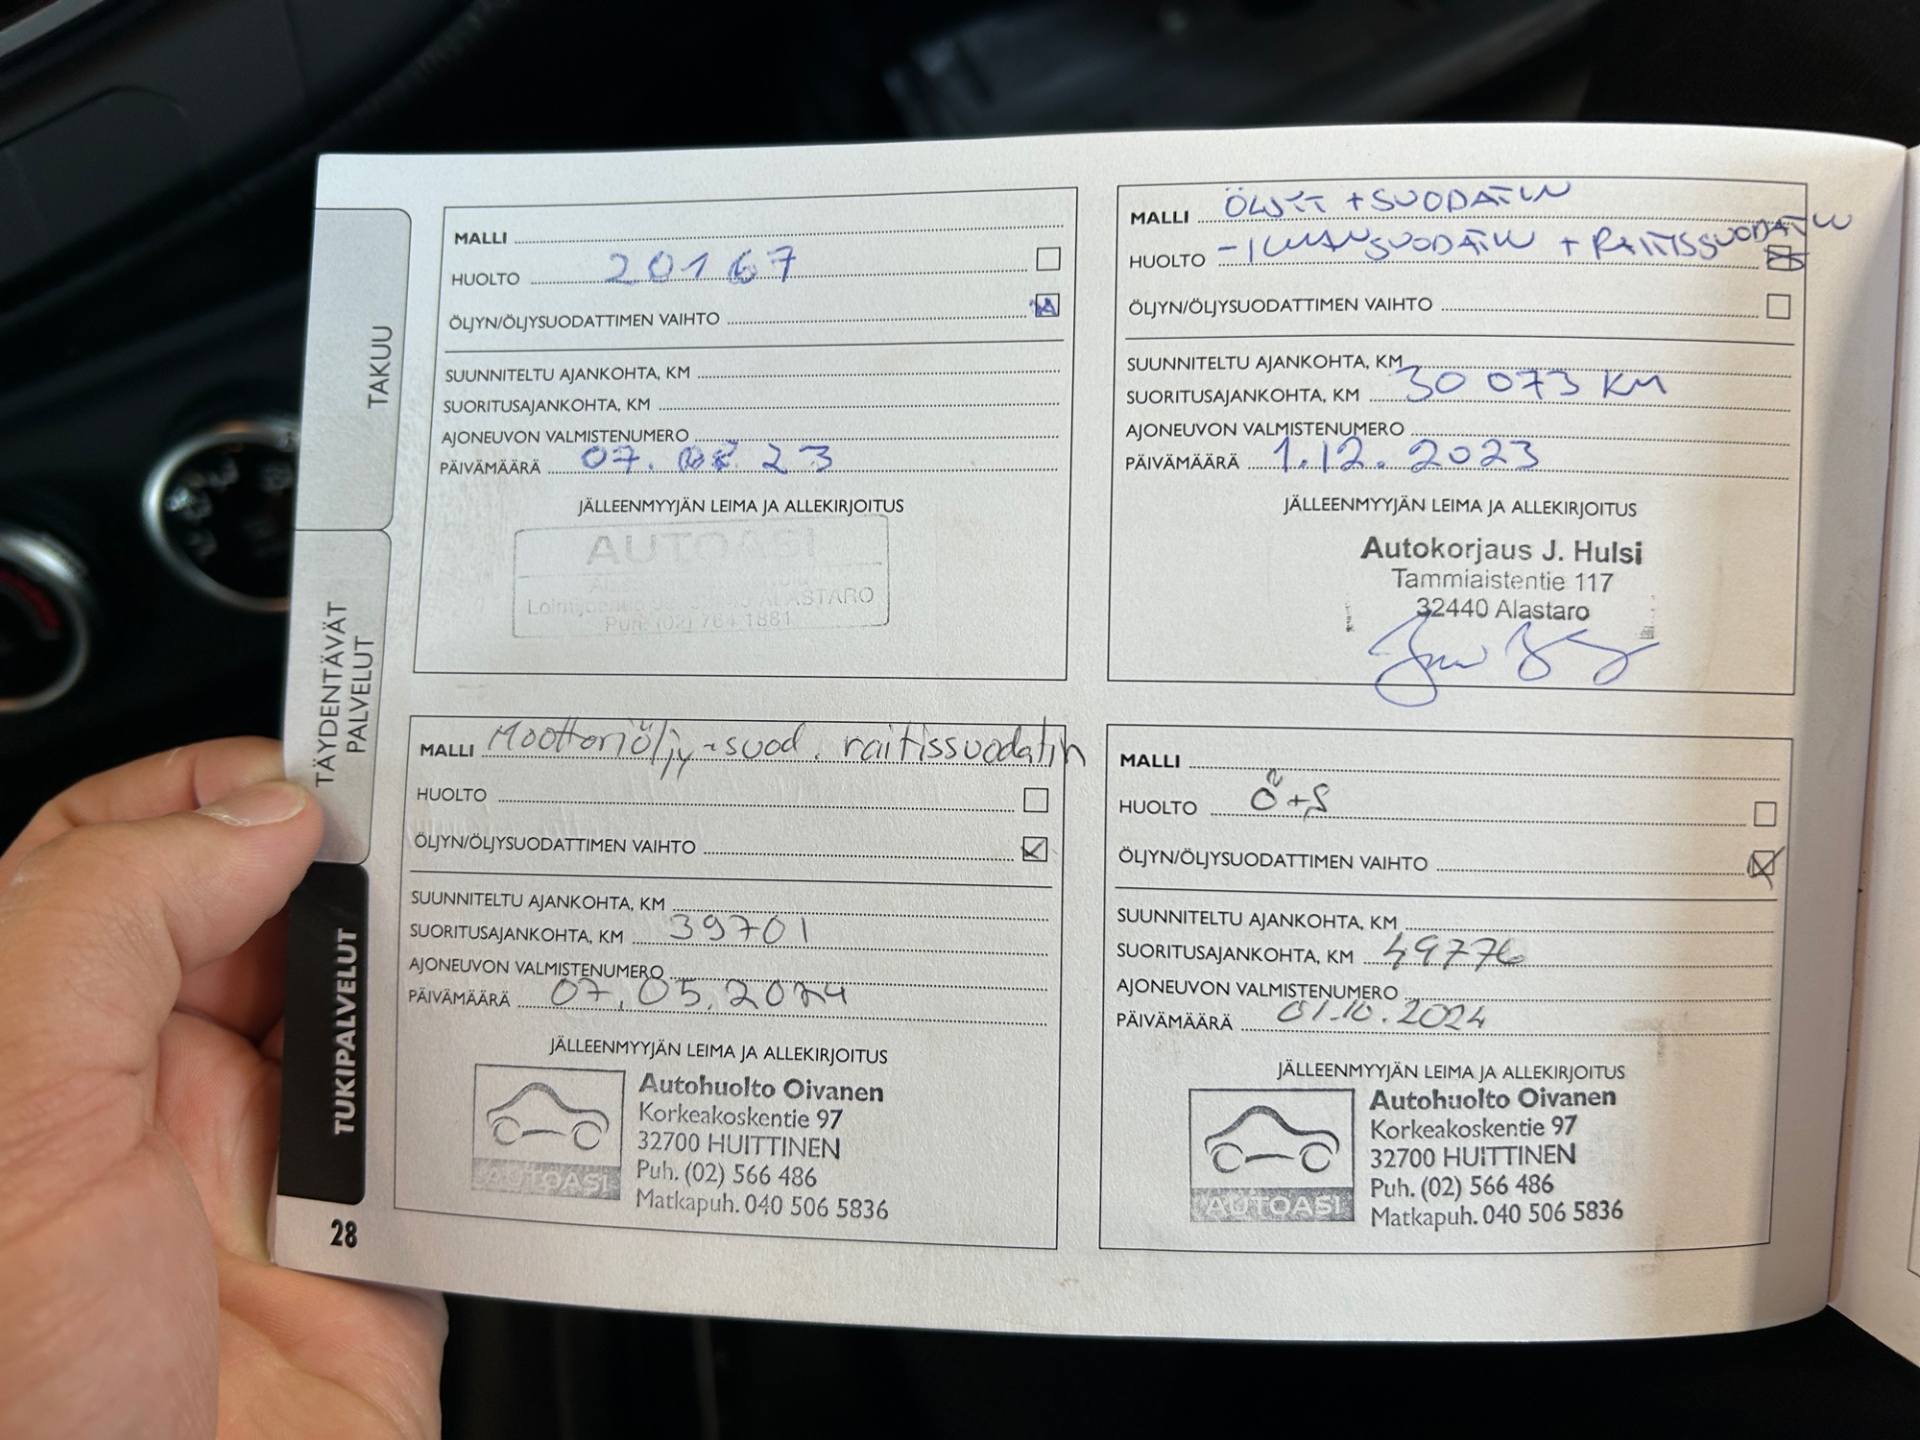 TAKUU
TÄYDENTÄVÄT
PALVELUT
TUKIPALVELUT
28
MALLI
HUOLTO 20167
ÖLJYN/ÖLJYSUODATTIMEN VAIHTO
SUUNNITELTU AJANKOHTA, KM
SUORITUSAJANKOHTA, KM
AJONEUVON VALMISTENUMERO
PÄIVÄMÄÄRÄ 07. 23
JÄLLEENMYYJÄN LEIMA JA ALLEKIRJOITUS
AUTOASI
ALASTARO
Puh. (02) 764 1881
MALLI ÖLJYT +SUODATIN
HUOLTO -ILMANSUODATIN + RAITISSUODATIN
ÖLJYN/ÖLJYSUODATTIMEN VAIHTO
SUUNNITELTU AJANKOHTA, KM
SUORITUSAJANKOHTA, KM 30 073 KM
AJONEUVON VALMISTENUMERO
PÄIVÄMÄÄRÄ 1.12.2023
JÄLLEENMYYJÄN LEIMA JA ALLEKIRJOITUS
Autokorjaus J. Hulsi
Tammiaistentie 117
32440 Alastaro
MALLI Moottoriöljy-suod. raitissuodatin
HUOLTO
ÖLJYN/ÖLJYSUODATTIMEN VAIHTO
SUUNNITELTU AJANKOHTA, KM
SUORITUSAJANKOHTA, KM 39701
AJONEUVON VALMISTENUMERO
PÄIVÄMÄÄRÄ 07.05.2024
JÄLLEENMYYJÄN LEIMA JA ALLEKIRJOITUS
AUTOASI
Autohuolto Oivanen
Korkeakoskentie 97
32700 HUITTINEN
Puh. (02) 566 486
Matkapuh. 040 506 5836
MALLI
HUOLTO Ö+S
ÖLJYN/ÖLJYSUODATTIMEN VAIHTO
SUUNNITELTU AJANKOHTA, KM
SUORITUSAJANKOHTA, KM 49776
AJONEUVON VALMISTENUMERO
PÄIVÄMÄÄRÄ 01.10.2024
JÄLLEENMYYJÄN LEIMA JA ALLEKIRJOITUS
AUTOASI
Autohuolto Oivanen
Korkeakoskentie 97
32700 HUITTINEN
Puh. (02) 566 486
Matkapuh. 040 506 5836